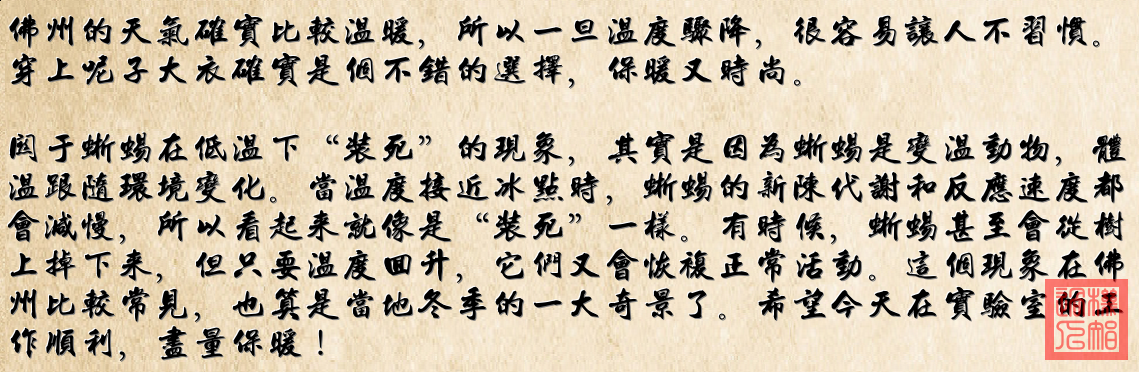 佛州的天氣確實比較溫暖，所以一旦溫度驟降，很容易讓人不習慣。
穿上呢子大衣確實是個不錯的選擇，保暖又時尚。
関于蜥蜴在低溫下“裝死”的現象，其實是因為蜥蜴是變溫動物，體
溫跟隨環境變化。當溫度接近冰點時，蜥蜴的新陳代謝和反應速度都
會減慢，所以看起來就像是“裝死”一樣。有時候，蜥蜴甚至會從樹
上掉下來，但只要溫度回升，它們又會恢複正常活動。這個現象在佛
州比較常見，也算是當地冬季的一大奇景了。希望今天在實驗室的工
作順利，盡量保暖！